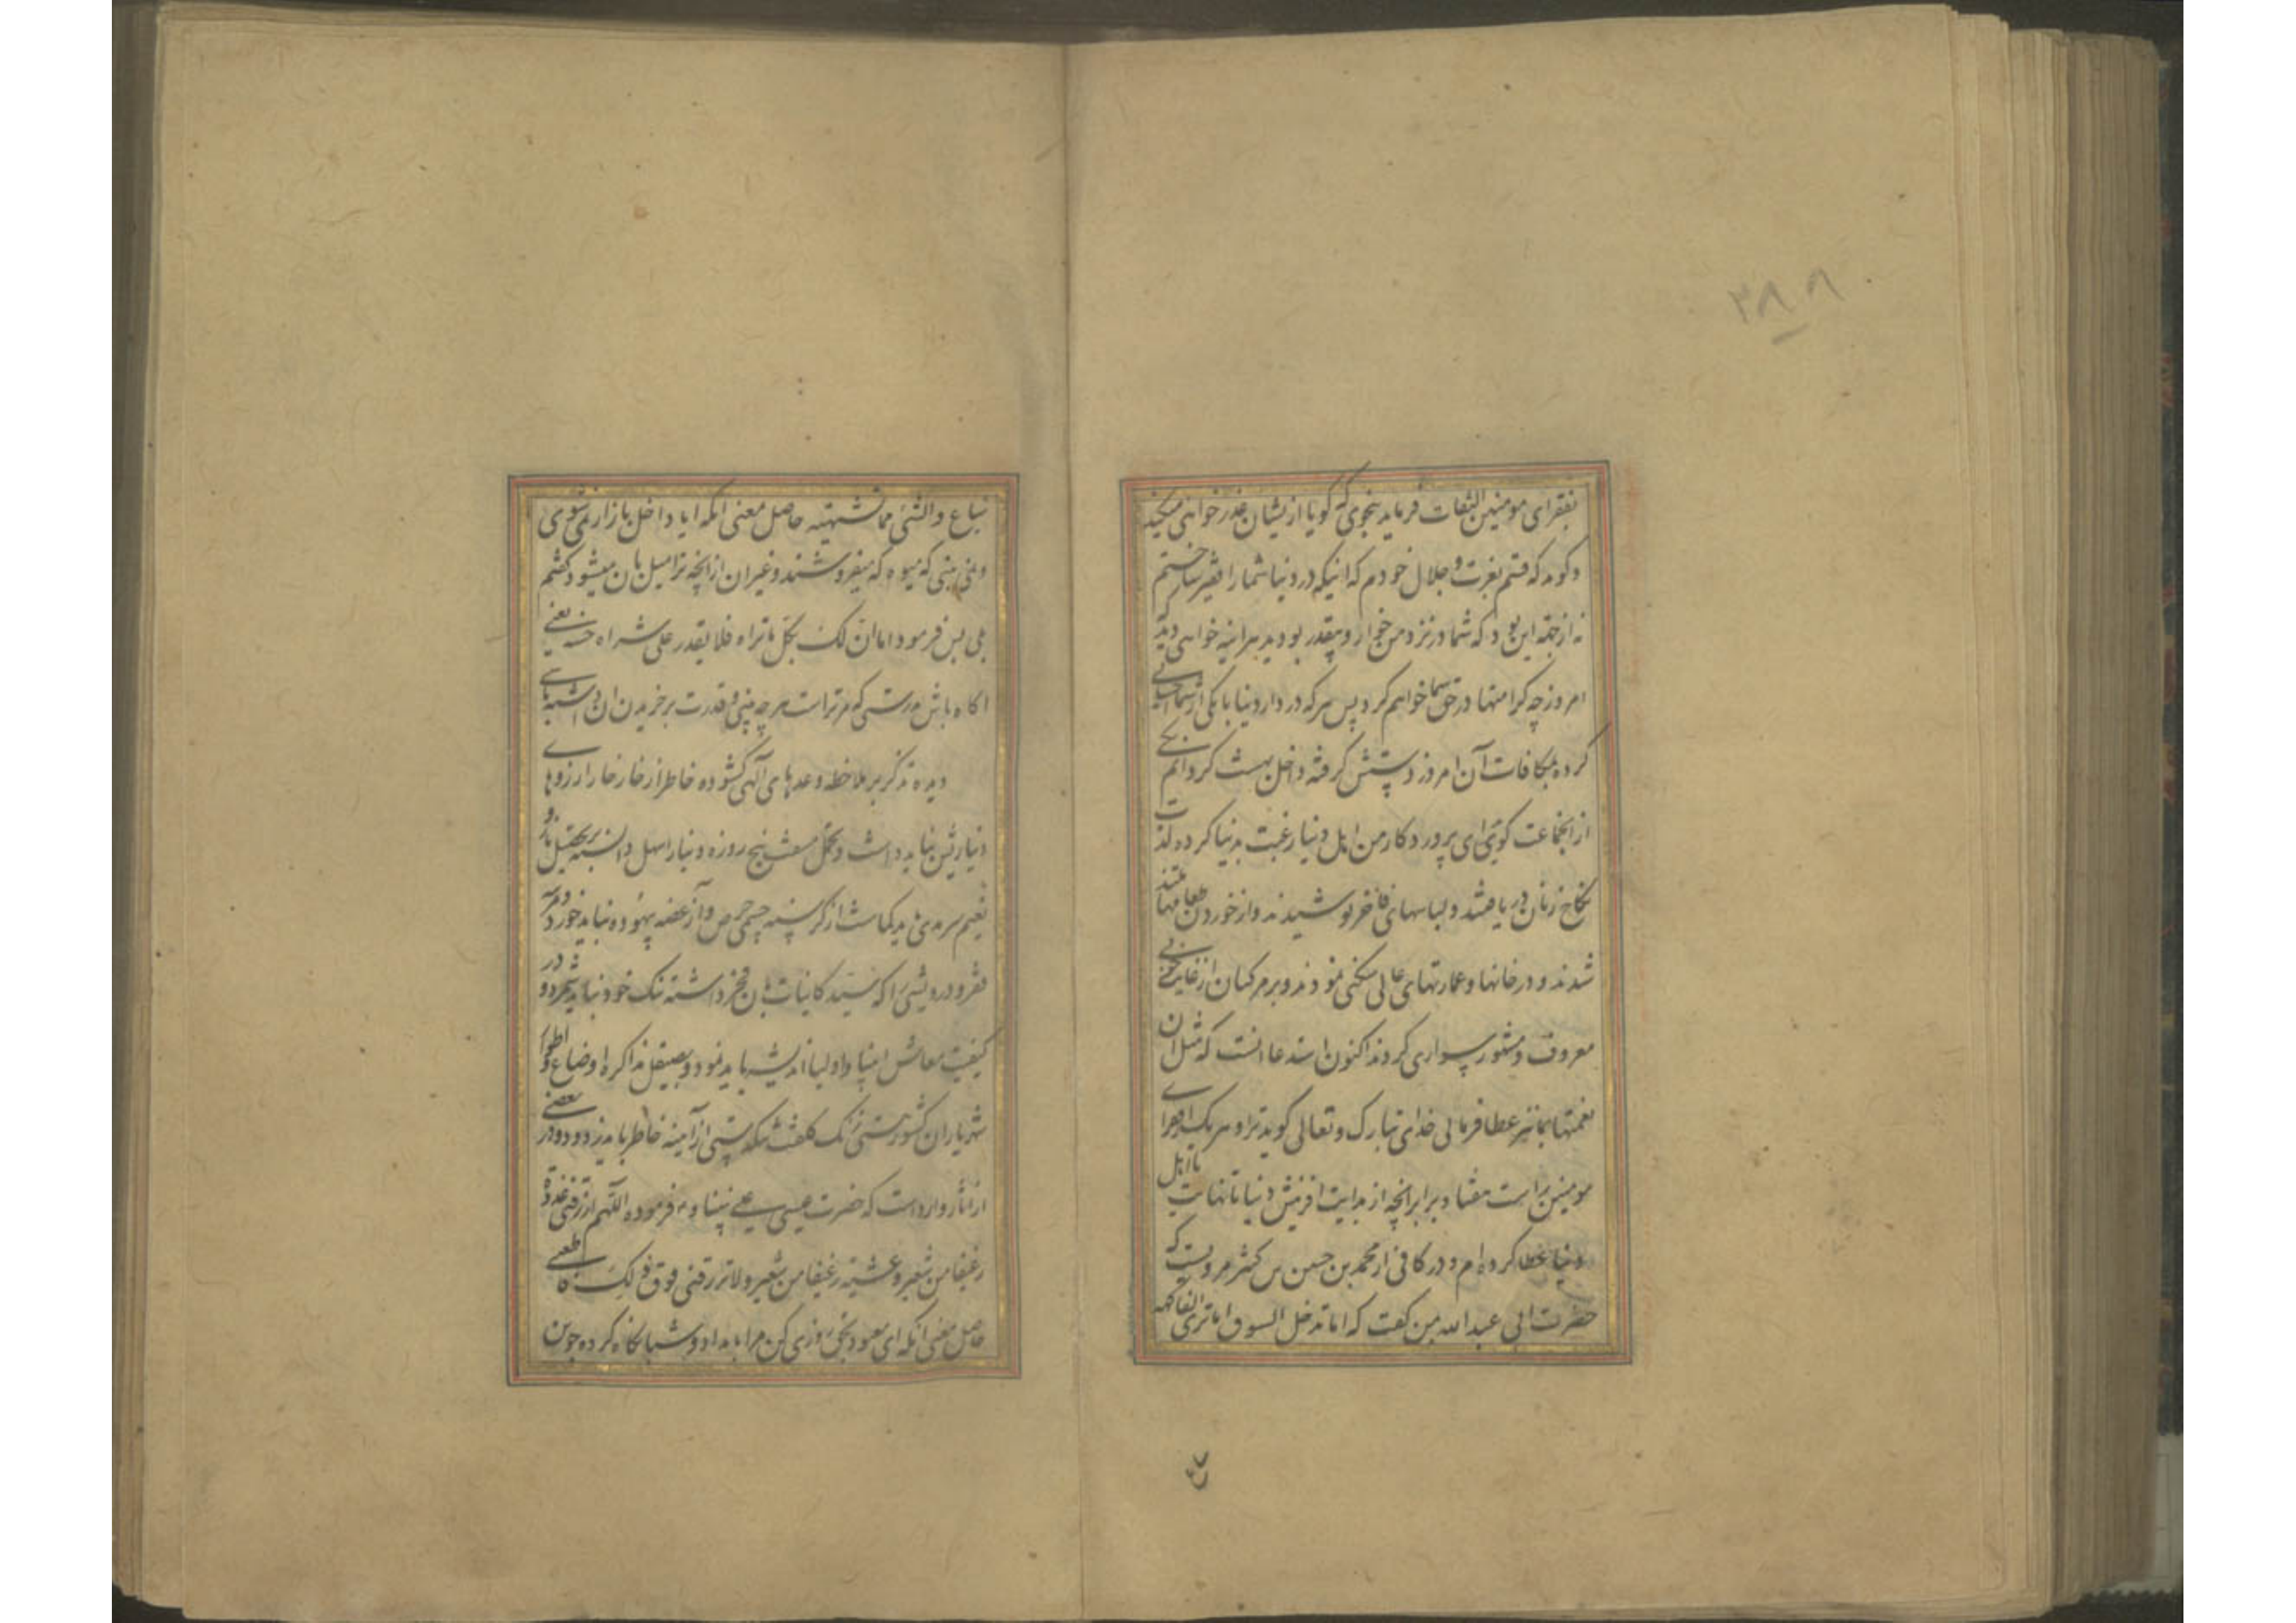 ۲۸۸
بفقرای مومنین التفات فرماید بنحوی که گویا ازیشان عذرخواهی میکند
و گوید که قسم بعزت و جلال خودم که اینکه در دنیا شما را فقیر ساختم
نه از جهة این بود که شما در نزد من خوار و بیقدر بودید هراینه خواهی دید
امروز چه کرامتها در حق شما خواهم کرد پس هر که در دار دنیا با یکی از شما احسانی
کرده بمکافات آن امروز دستش گرفته داخل بهشت کردانم یکی
از انجماعت کوید ای پروردکار من اهل دنیا رغبت بدنیا کرده لذت
نکاح زنان دریافتند و لباسهای فاخر پوشیدند و از خوردن طعامها متمتع
شدند و در خانها و عمارتهای عالی سکنی نمودند و بر مرکبان از غایت خوبی
معروف و مشهور سواری کردند اکنون استدعا انست که مثل آن
نعمتها بما نیز عطا فرمائی خدای تبارک و تعالی کوید ترا و هر یک از فقرای
مومنین راست هفتاد برابر انچه از بدایت افرینش دنیا تا نهایت باهل
دنیا عطا کرده‌ام و در کافی از محمد بن حسین بن کثیر مرویست که
حضرت ابی عبدالله بمن گفت که اما تدخل السوق اما تری الفاکهة
تباع والشئ مما تشتهیه حاصل معنی انکه ایا داخل بازار می شوی
و نمی بینی که میوه که میفروشند و غیر ان از انچه ترا میل بان میشود گفتم
بلی پس فرمود اما ان لک بکل ما تراه فلا یقدر علی شراه حسنة یعنی
اکاه باش بدرستی که مر تراست هر چه بینی و قدرت بر خریدن ان نداشته باشی
دیده تذکر بر ملاحظه وعدهای الهی کشوده خاطر از خار خار ارزوهای
دنیا ریش نباید داشت و تحمل مشقت پنج روزه دنیا را سهل دانسته بتحصیل ناز و
نعیم سرمدی باید کماشت از کرسنه چشمی حرص و آز غصه بیهوده نباید خورد و مرتبه
فقر و درویشی را که سید کاینات بان فخر داشته ننک خود نباید شمرد و در
کیفیت معاش انبیا و اولیا اندیشه باید نمود و بصیقل مذاکره اوضاع و اطوار
شهریاران کشور هستی زنک کلفت تنکدستی از آینه خاطر باید زدود و در بعضی
از اثار وارد است که حضرت عیسی علی نبینا و ع فرموده اللهم ارزقنی غدوة
رغیفا من شعیر و عشیة رغیفا من شعیر و لا ترزقنی فوق ذلک فاطغی
حاصل معنی انکه ای معبود بحق روزی کن مرا بامداد و شبانکاه کرده جوین